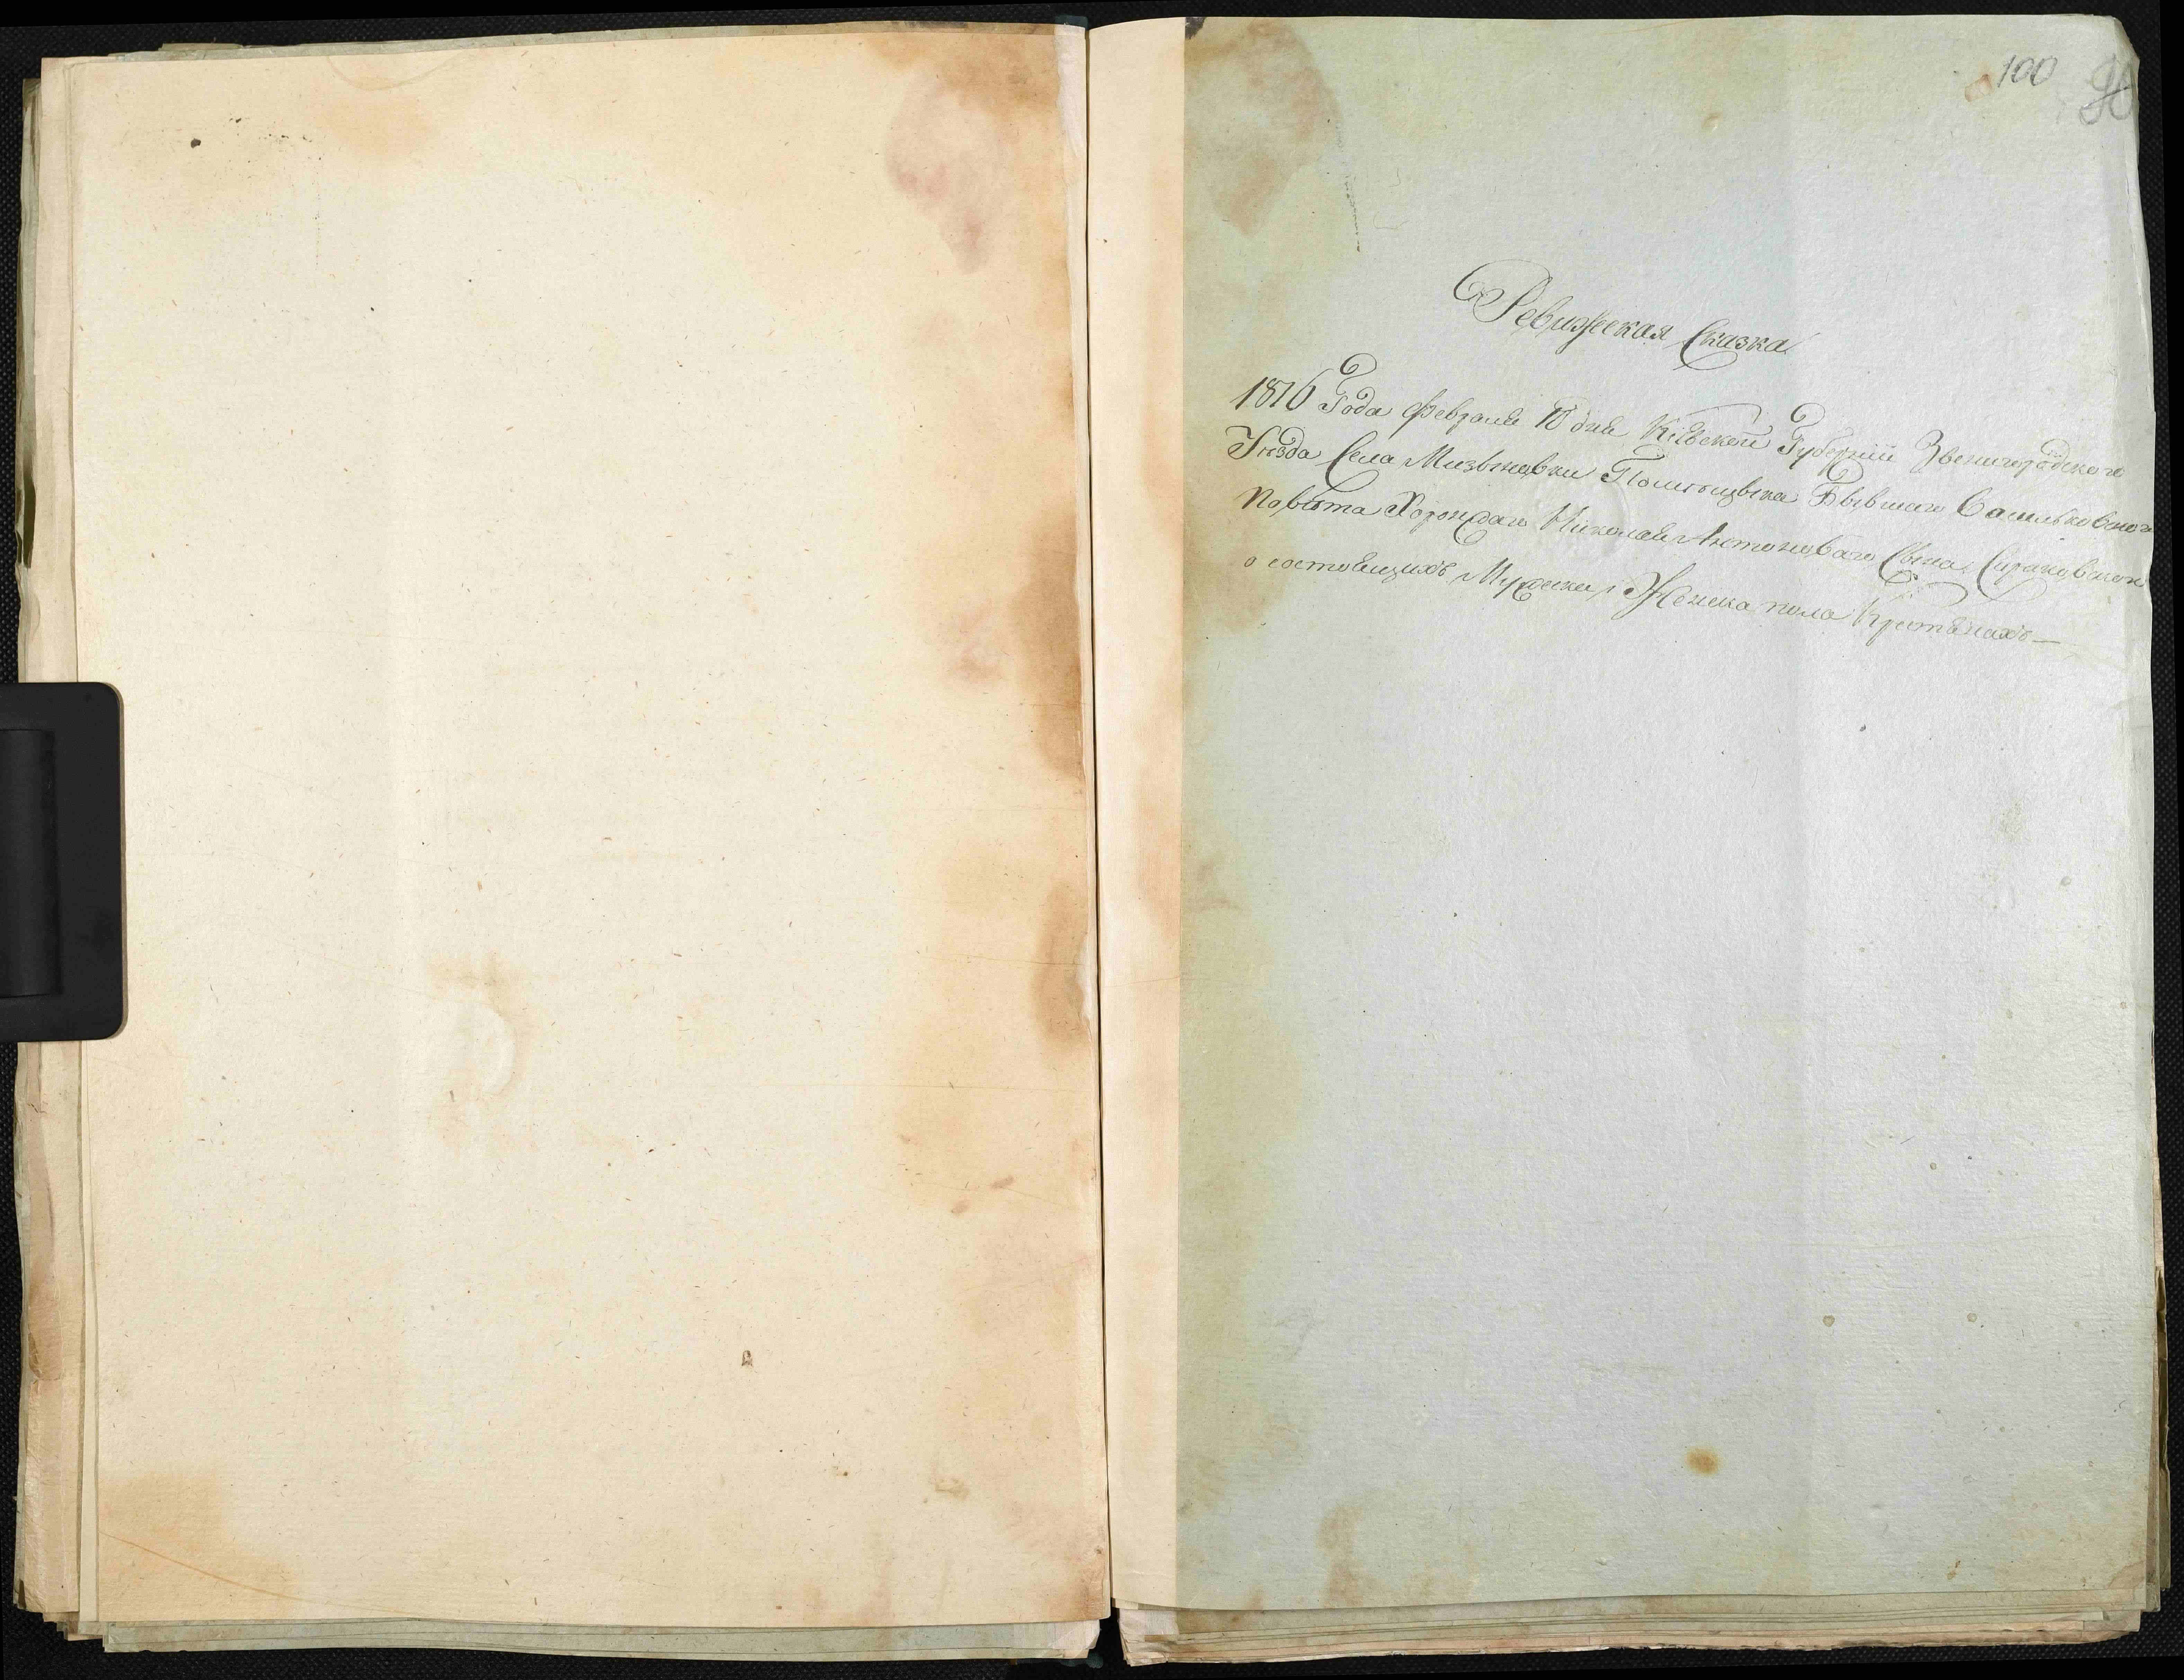 100
90
Ревижская Сказка
1816 Года февраля 10 дня Кіевской Губерніи Звенигородского
Уезда Села Мизыновки Помѣщика Бывшаго Васильковского
Повѣта Хоронжаго Николая Антоноваго Сына Сираковского
о состоящихъ Мужеска, и Женска пола Крестьянахъ—